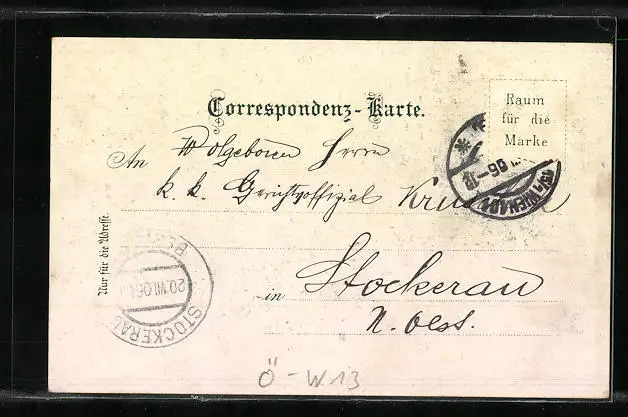 Correspondenz-Karte.
Raum
für die
Marke
An Wolgeboren Herrn
k. k. Gerichtsoffizial
Nur für die Adresse.
in Stockerau
N. Oest.
20.VII.06
STOCKERAU
Ö - W 13